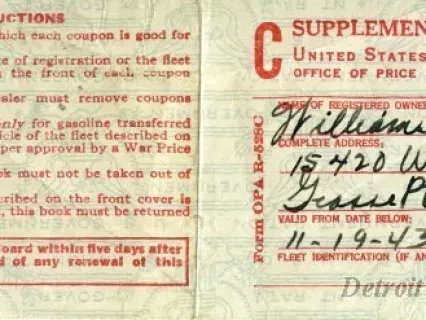 UCTIONS
which each coupon is good for
e of registration or the fleet
n the front of each coupon
ealer must remove coupons
only for gasoline transferred
icle of the fleet described on
per approval by a War Price
ok must not be taken out of
ribed on the front cover is
, this book must be returned
Board within five days after
d of any renewal of this
C
SUPPLEMEN
UNITED STATES
OFFICE OF PRICE
Form OPA R-528C
NAME OF REGISTERED OWNE
William
COMPLETE ADDRESS:
15420 W
Grosse P
VALID FROM DATE BELOW:
11-19-43
FLEET IDENTIFICATION (IF AN
Detroit